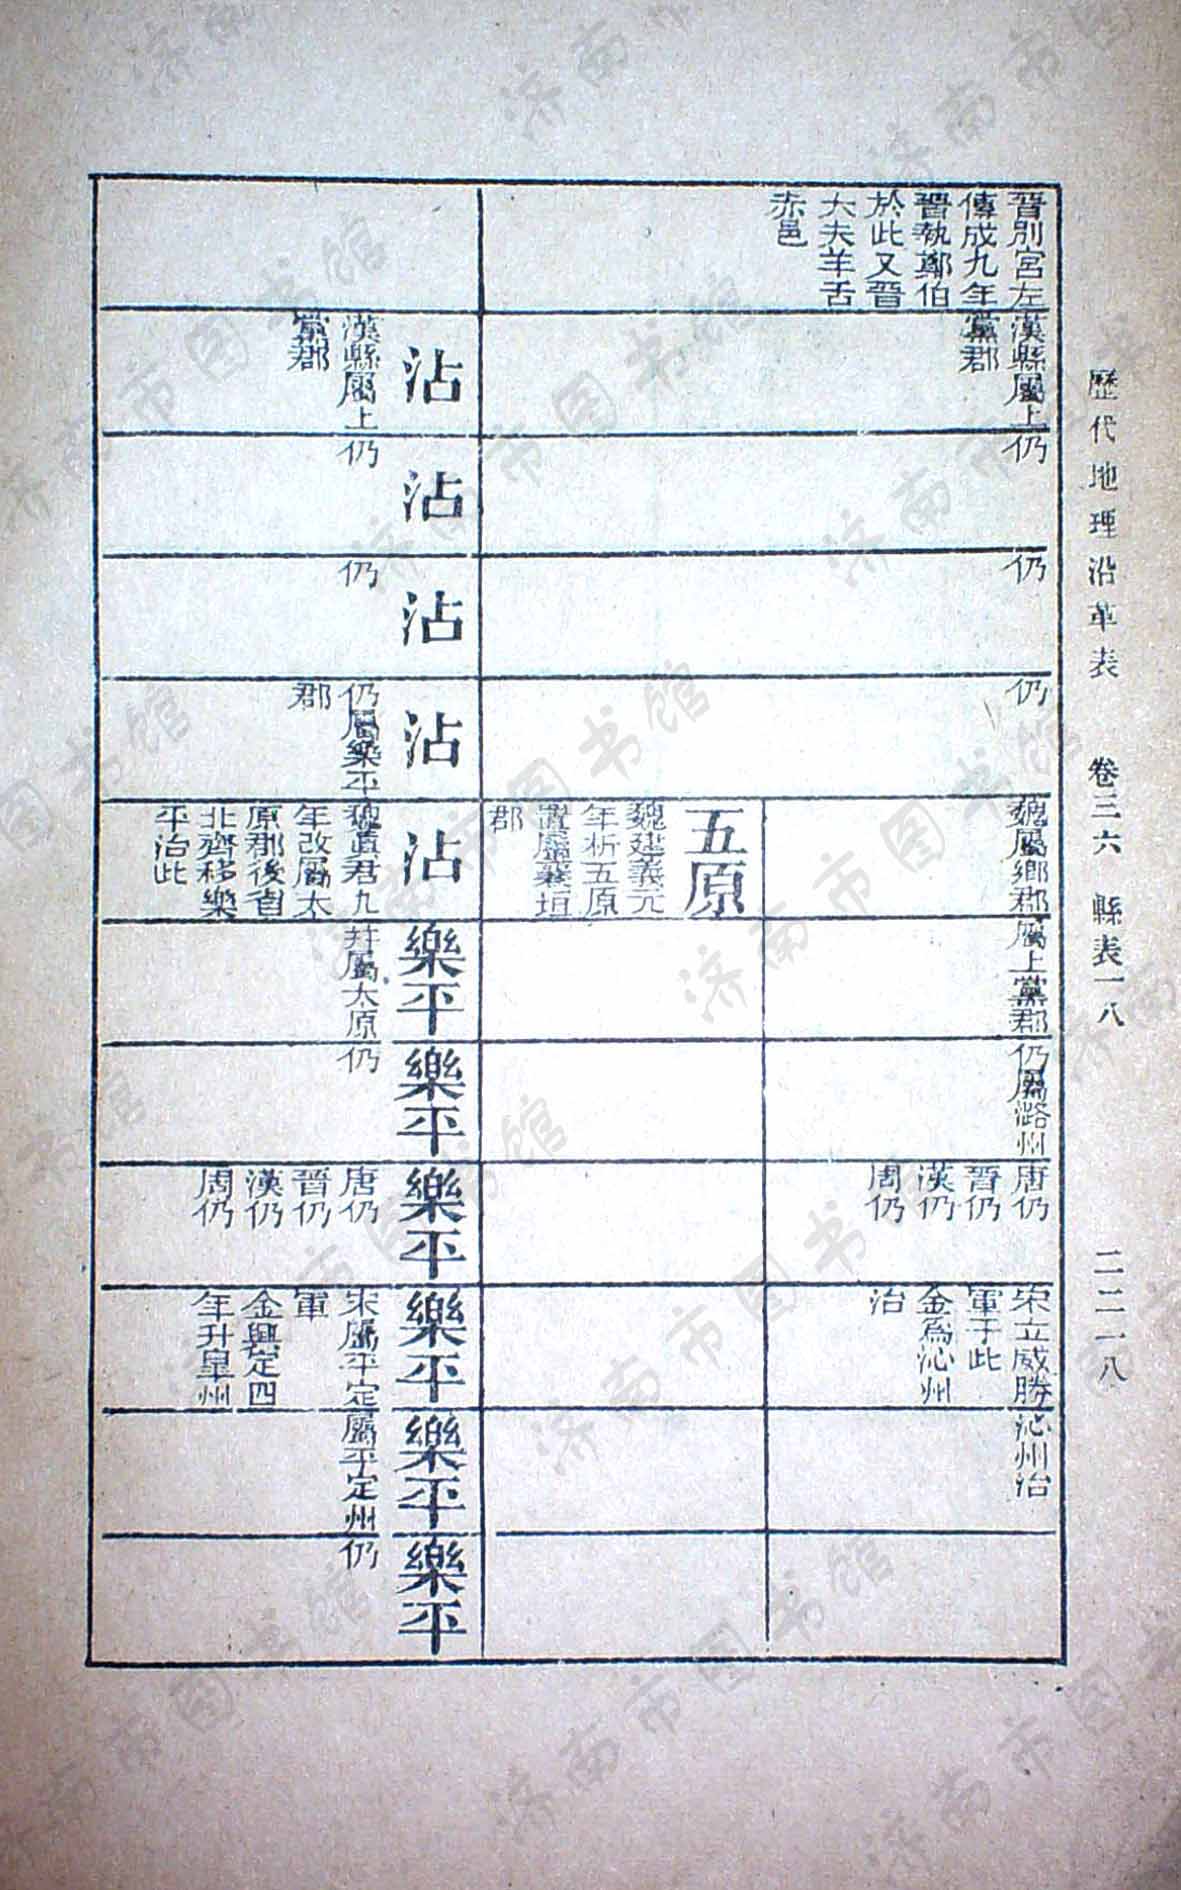 歷代地理沿革表 卷三六 縣表一八 二二一八
晉別宮左
傳成九年
晉執鄭伯
於此又晉
大夫羊舌
赤邑
漢縣屬上
黨郡
仍
仍
仍
魏屬鄉郡
屬上黨郡
仍屬潞州
唐仍
晉仍
漢仍
周仍
宋立威勝
軍于此
金爲沁州
治
沁州治
五原
魏建義元
年析五原
置屬襄垣
郡
沾
漢縣屬上
黨郡
沾
仍
沾
仍
沾
仍屬樂平
郡
沾
魏眞君九
年改屬太
原郡後省
北齊移樂
平治此
樂平
幷屬太原
樂平
仍
樂平
唐仍
晉仍
漢仍
周仍
樂平
宋屬平定
軍
金興定四
年升皐州
樂平
屬平定州
樂平
仍
济南市图书馆